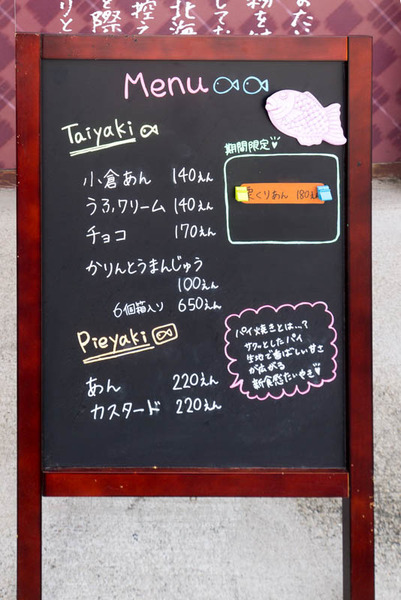 北海
控え
Menu
Taiyaki
小倉あん 140えん
うふ,クリーム 140えん
チョコ 170えん
かりんとうまんじゅう
100えん
6個箱入り 650えん
期間限定
くりあん 180
Pieyaki
あん 220えん
カスタード 220えん
パイ焼きとは…?
サクッとしたパイ
生地で香ばしい甘さ
が広がる
新食感たいやき